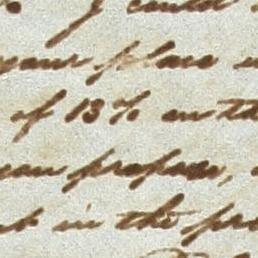 I could
your place
of 13% on th
you propose,
in the pro